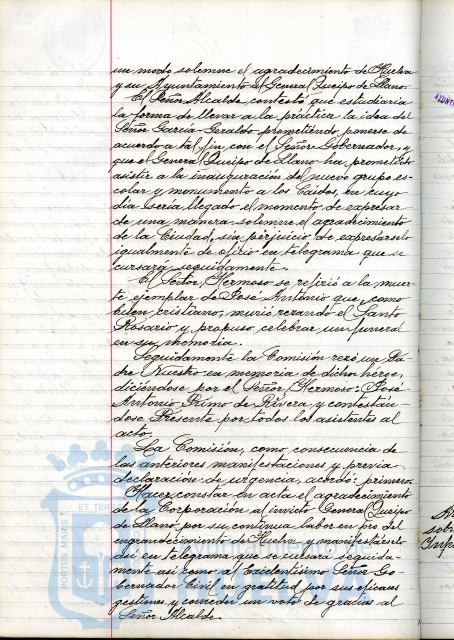 un modo solemne el agradecimiento de Huelva
y su Ayuntamiento al General Queipo de Llano.
El Señor Alcalde contestó que estudiaria
la forma de llevar a la práctica la idea del
Señor Garcia Geraldo prometiendo ponerse de
acuerdo a tal fin con el Señor Gobernador, y
que el General Queipo de Llano ha prometido
asistir a la inauguración del nuevo grupo es-
colar y monumento a los Caidos, en cuyo
dia seria llegado el momento de expresar
de una manera solemne el agradecimiento
de la Ciudad, sin perjuicio de expresarselo
igualmente de oficio en telegrama que se
cursará seguidamente.
El Señor Hermoso se refirió a la muer-
te ejemplar de José Antonio que, como
buen cristiano, murió rezando el Santo
Rosario y propuso celebrar un funeral
en su memoria.
Seguidamente la Comisión rezó un Pa-
dre Nuestro en memoria de dicho héroe,
diciéndose por el Señor Hermoso: José
Antonio Primo de Rivera, y contestán-
dose Presente por todos los asistentes al
acto.
La Comisión, como consecuencia de
las anteriores manifestaciones y previa
declaración de urgencia, acordó: primero.
Hacer constar en acta el agradecimiento
de la Corporación al invicto General Queipo
de Llano por su continua labor en pro del
engrandecimiento de Huelva y manifestárselo
asi en telegrama que se cursará seguida-
mente asi como al Excelentísimo Señor Go-
bernador Civil en gratitud por sus eficaces
gestiones y conceder un voto de gracias al
Señor Alcalde.
ET TER
PORTUS MARIS